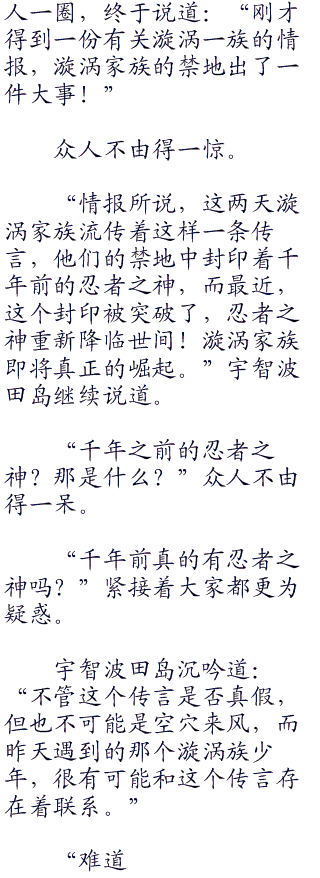 人一圈，终于说道：“刚才
得到一份有关漩涡一族的情
报，漩涡家族的禁地出了一
件大事！”
众人不由得一惊。
“情报所说，这两天漩
涡家族流传着这样一条传
言，他们的禁地中封印着千
年前的忍者之神，而最近，
这个封印被突破了，忍者之
神重新降临世间！漩涡家族
即将真正的崛起。”宇智波
田岛继续说道。
“千年之前的忍者之
神？那是什么？”众人不由
得一呆。
“千年前真的有忍者之
神吗？”紧接着大家都更为
疑惑。
宇智波田岛沉吟道：
“不管这个传言是否真假，
但也不可能是空穴来风，而
昨天遇到的那个漩涡族少
年，很有可能和这个传言存
在着联系。”
“难道